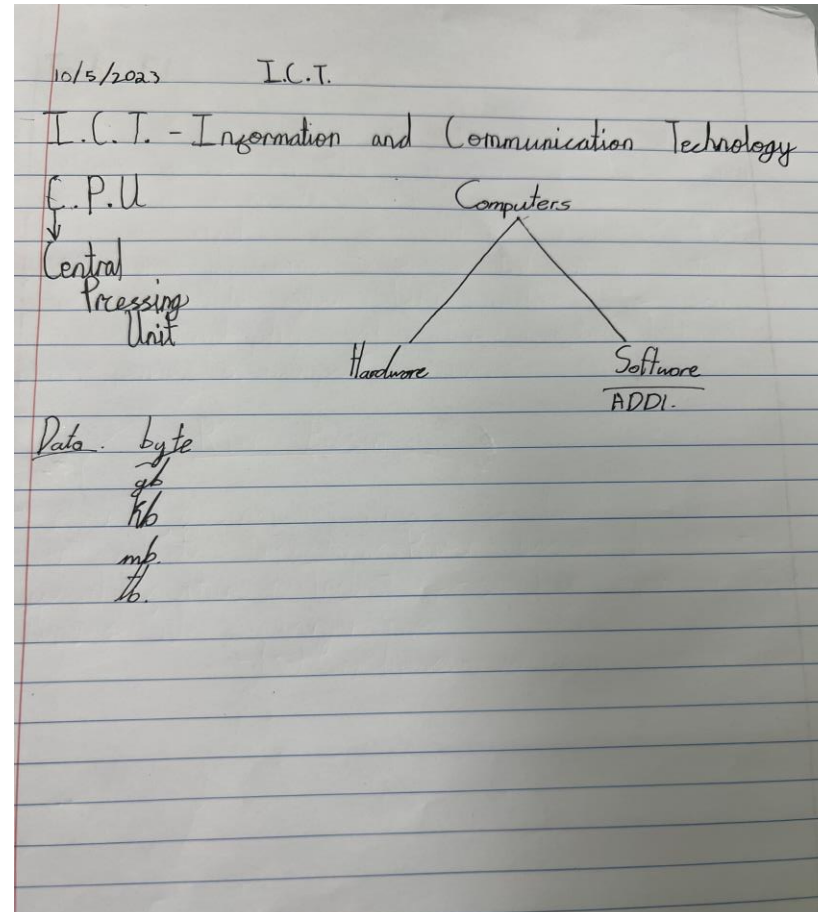 10/5/2023 I.C.T.
I.C.T. - Information and Communication Technology
C.P.U
Central
Prcessing
Unit
Computers
Hardware
Software
ADDI.
Data. byte
gb
kb
mb.
tb.